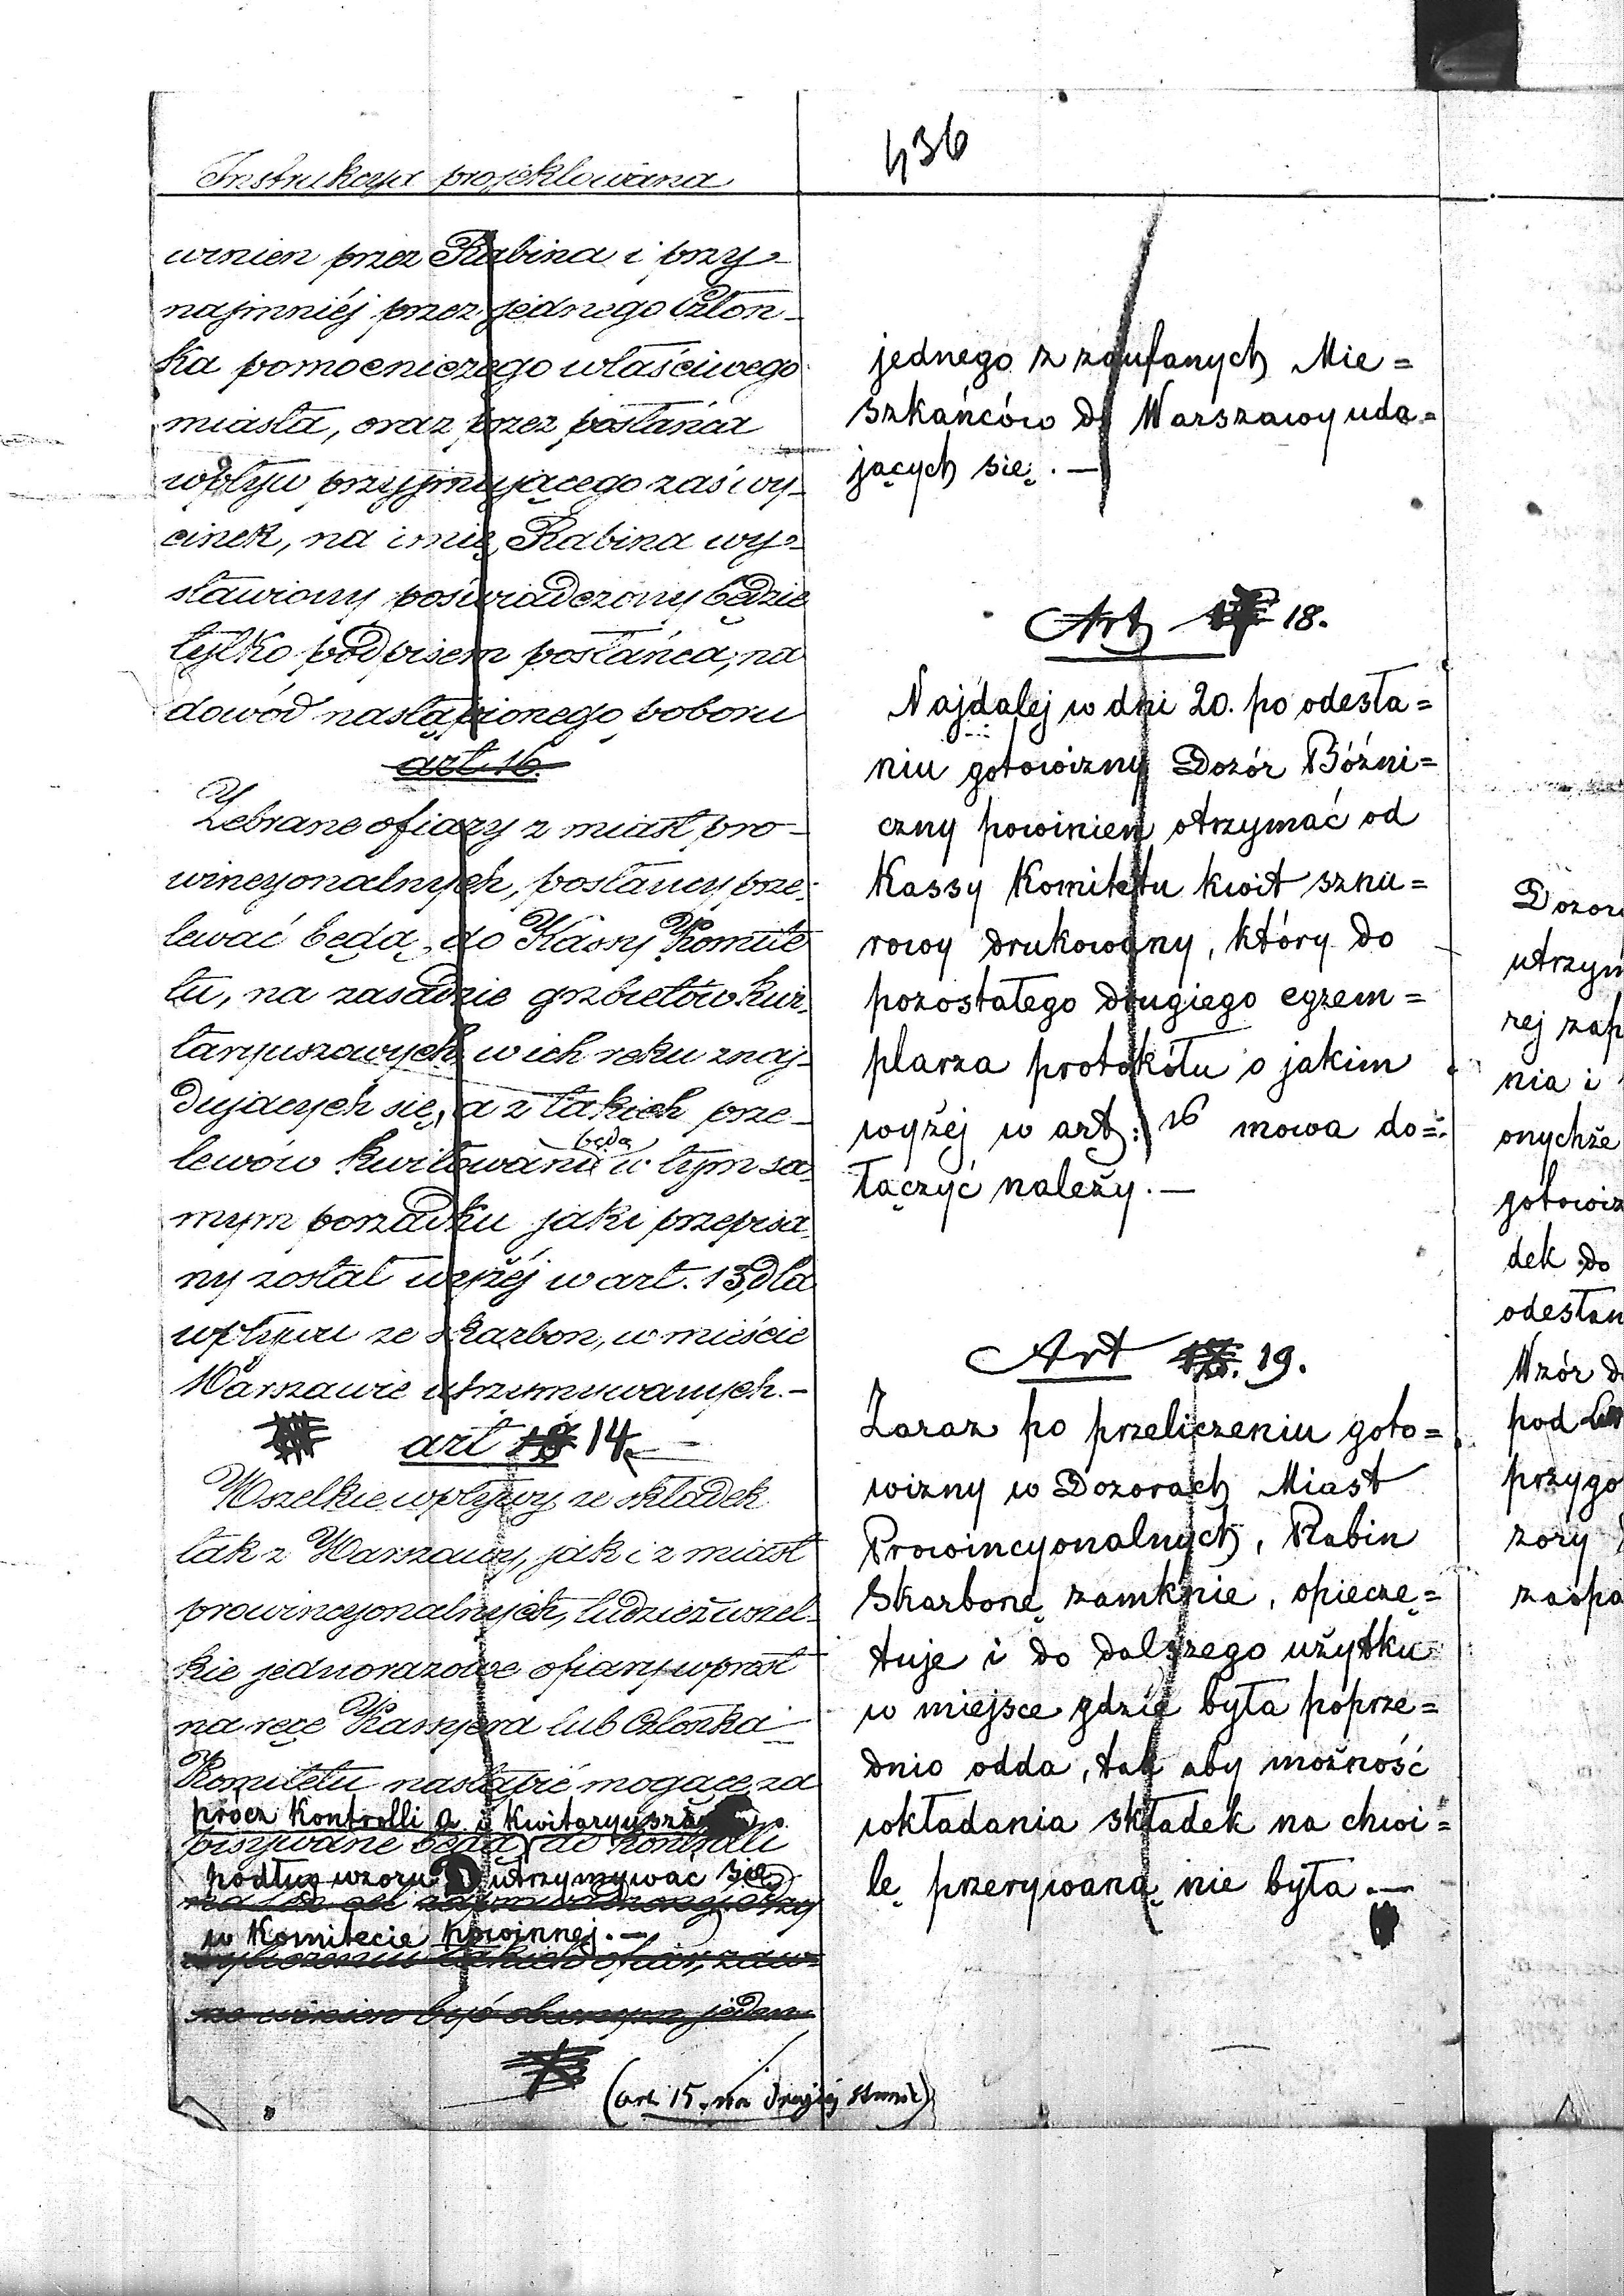 436
Instrukcya projektowana
winien przez Rabina i przy-
najmniéj przez jednego Człon-
ka pomocniczego właściwego
miasta, oraz przez posłańca
wpływ przyjmującego zaś wy-
cinek, na imię Rabina wy-
stawiony poświadczony będzie
tylko podpisem posłańca, na
dowód nastąpionego poboru
art 16.
Zebrane ofiary z miast pro-
wincyonalnych, posłańcy prze-
lewać będą, do Kassy Komite
tu, na zasadzie grzbietów kwi-
taryuszowych w ich ręku znaj-
dujących się, a z takich prze-
lewów kwitowani będą w tym sa-
mym porządku jaki przepisa-
ny został wyżéj w art. 13, dla
wpływu ze skarbon, w mieście
Warszawie utrzymywanych.-
art 14.
Wszelkie wpływy ze składek
tak z Warszawy, jak i z miast
prowincyonalnych, tudzież wszel-
kie jednorazowe ofiary wprost
na ręce Kassyera lub Członka
Komitetu nastąpić mogące, za
prócz Kontrolli a
pisywane będą do Kontrolli
podług wzoru D utrzymywać się
w Komitecie powinnej.-
(art 15. na drugiéj stronie)
jednego z zaufanych Mie=
szkańców do Warszawy uda=
jących się.-
Art 18.
Najdalej w dni 20. po odesła=
niu gotowizny Dozór Bóźni=
czny powinien otrzymać od
Kassy Komitetu kwit sznu=
rowy drukowany, który do
pozostałego drugiego egzem=
plarza protokółu o jakim
wyżej w art: 16 mowa do=
łączyć należy.-
Art 19.
Zaraz po przeliczeniu goto=
wizny w Dozorach Miast
Prowincyonalnych, Rabin
Skarbonę zamknie, opieczę=
tuje i do dalszego użytku
w miejsce gdzie była poprze=
dnio odda, tak aby możność
wkładania składek na chwi=
lę przerywaną nie była.-
utrzym
rej zap
nia i
onychże
gotowiz
dek do
odesłan
Wzór do
pod
przygo
zory
zaopa